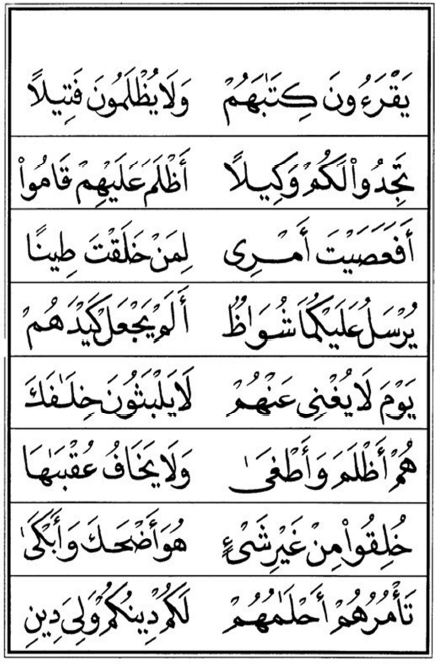 يَقْرَءُونَ كِتَٰبَهُمْ وَلَا يُظْلَمُونَ فَتِيلًا
تَجِدُوا۟ لَكُمْ وَكِيلًا أَظْلَمَ عَلَيْهِمْ قَامُوا۟
أَفَعَصَيْتَ أَمْرِى لِمَنْ خَلَقْتَ طِينًا
يُرْسَلُ عَلَيْكُمَا شُوَاظٌ أَلَمْ يَجْعَلْ كَيْدَهُمْ
يَوْمَ لَا يُغْنِى عَنْهُمْ لَا يَلْبَثُونَ خِلَٰفَكَ
هُمْ أَظْلَمَ وَأَطْغَىٰ وَلَا يَخَافُ عُقْبَٰهَا
خُلِقُوا۟ مِنْ غَيْرِ شَىْءٍ هُوَ أَضْحَكَ وَأَبْكَىٰ
تَأْمُرُهُمْ أَحْلَٰمُهُمْ لَكُمْ دِينُكُمْ وَلِىَ دِينِ